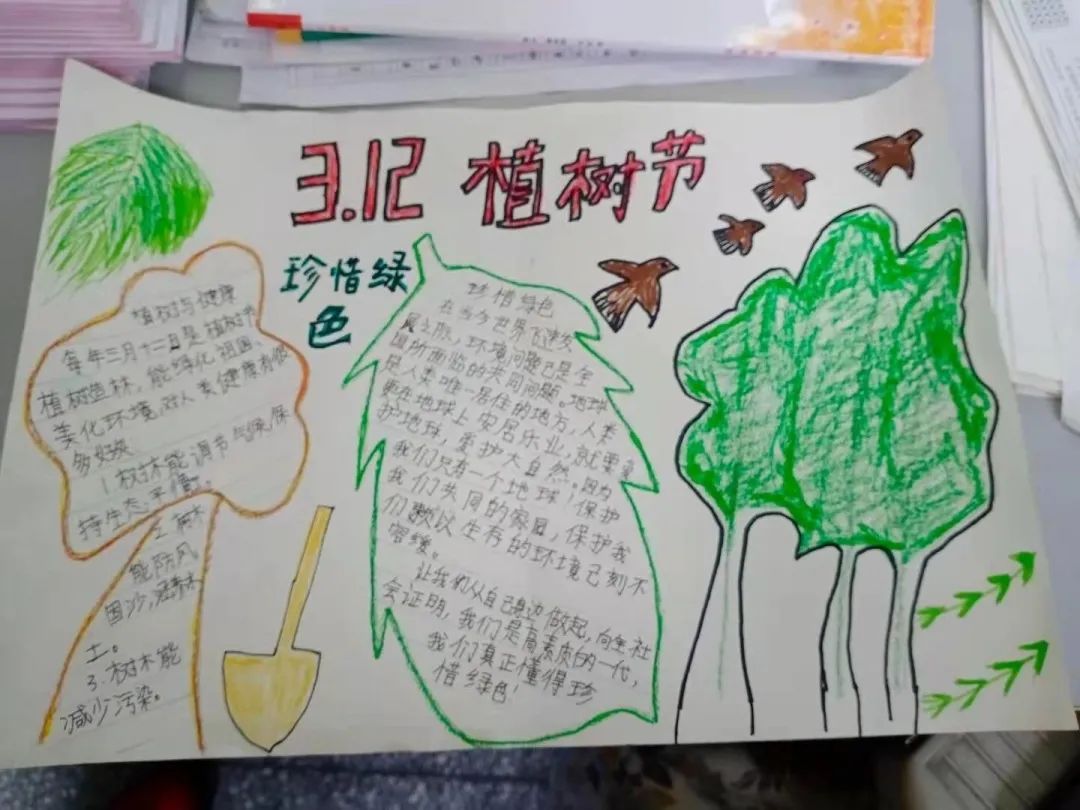 3.12 植树节
珍惜绿
色
植树与健康
每年三月十二日是植树节
植树植林，能绿化祖国、
美化环境，对人类健康有很
多好处
1.树木能调节气候，保
持生态平衡。
2.树木
能防风
固沙，涵养水
土。
3.树木能
减少污染。
珍惜绿色
在当今世界飞速发
展之际，环境问题已是全
国所面临的共同问题。地球
是人类唯一居住的地方，人类
要在地球上安居乐业，就要爱
护地球，爱护大自然。因为
我们只有一个地球！保护
我们共同的家园，保护我
们赖以生存的环境已刻不
容缓。
让我们从自己身边做起，向全社
会证明，我们是高素质的一代，
我们真正懂得珍
惜绿色！